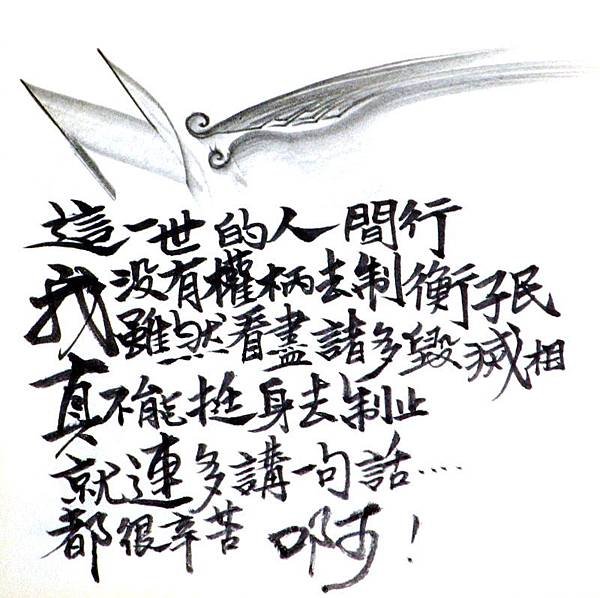 這一世的人間行
我没有權柄去制衡子民
雖然看盡諸多毀滅相
真不能挺身去制止
就連多講一句話‥‥
都很辛苦啊！